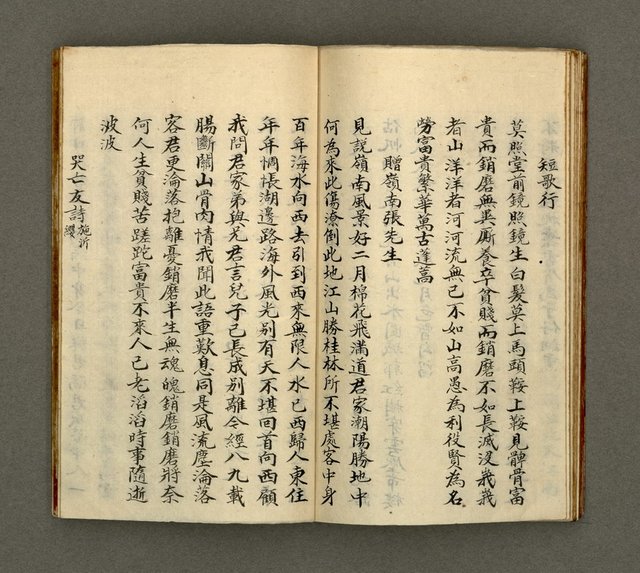 短歌行
莫照堂前鏡照鏡生白髮莫上馬頭鞍上鞍見髀骨富
貴而銷磨無異厮養卒貧賤而銷磨不如長滅没峩峩
者山洋洋者河河流無已不如山高愚為利役賢為名
勞富貴繁華萬古蓬蒿
贈嶺南張先生
見説嶺南風景好二月棉花飛滿道君家潮陽勝地中
何為來此傷潦倒此地江山勝桂林所不堪處客中身
百年海水向西去引到西來無限人水已西歸人東住
年年惆悵湖邊路海外風光别有天不堪回首向西顧
我問君家弟與兄君言兒子已長成别離今經八九載
腸斷關山骨肉情我聞此語重歎息同是風流塵淪落
客君更淪落抱離憂銷磨半生無魂魄銷磨銷磨將奈
何人生貧賤苦蹉跎富貴不來人已老滔滔時事隨逝
波波
哭亡友詩施沂